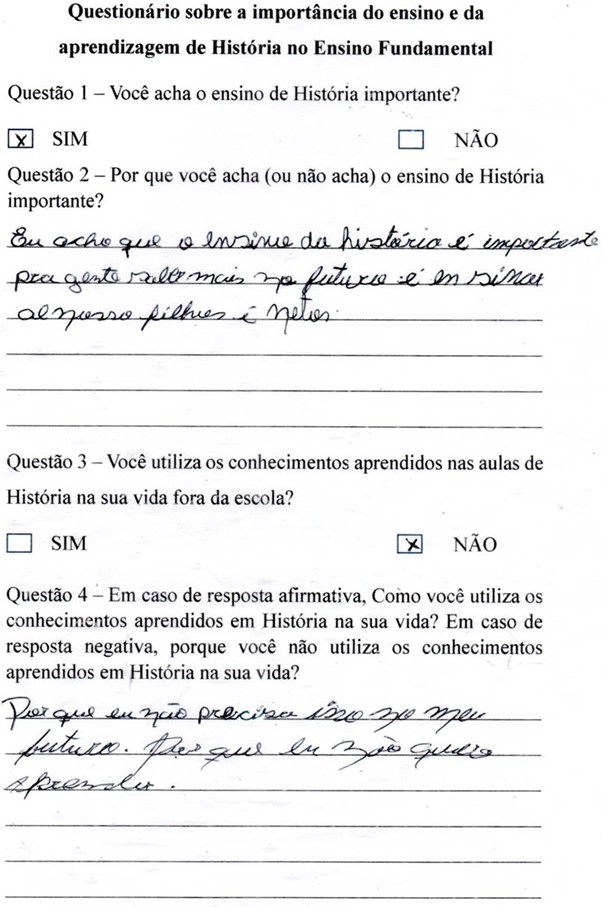 Questionário sobre a importância do ensino e da
aprendizagem de História no Ensino Fundamental
Questão 1 – Você acha o ensino de História importante?
X SIM NÃO
Questão 2 – Por que você acha (ou não acha) o ensino de História
importante?
Eu acho que o ensino da história é importante
pra gente saber mais no futuro é ensinar
al nosso filhos i netos.
Questão 3 – Você utiliza os conhecimentos aprendidos nas aulas de
História na sua vida fora da escola?
SIM X NÃO
Questão 4 – Em caso de resposta afirmativa, Como você utiliza os
conhecimentos aprendidos em História na sua vida? Em caso de
resposta negativa, porque você não utiliza os conhecimentos
aprendidos em História na sua vida?
Por que eu não precisa isso no meu
futuro. Por que eu não quero
aprender.